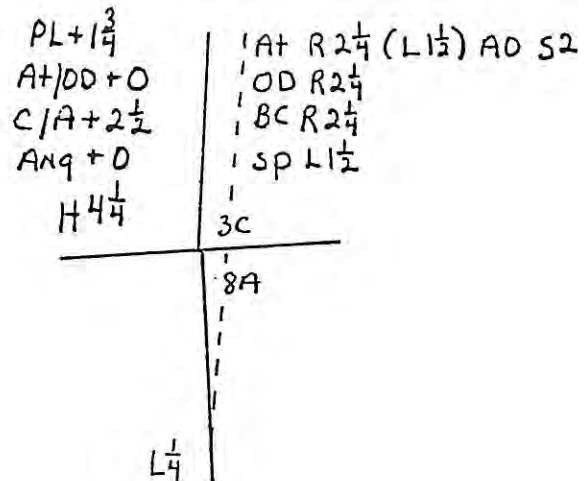 PL+1 3/4
At/OD+0
C/A+2 1/2
Ang+0
H4 1/4
At R2 1/4 (L1 1/2) AO S2
OD R2 1/4
BC R2 1/4
SP L1 1/2
3C
8A
L 1/4